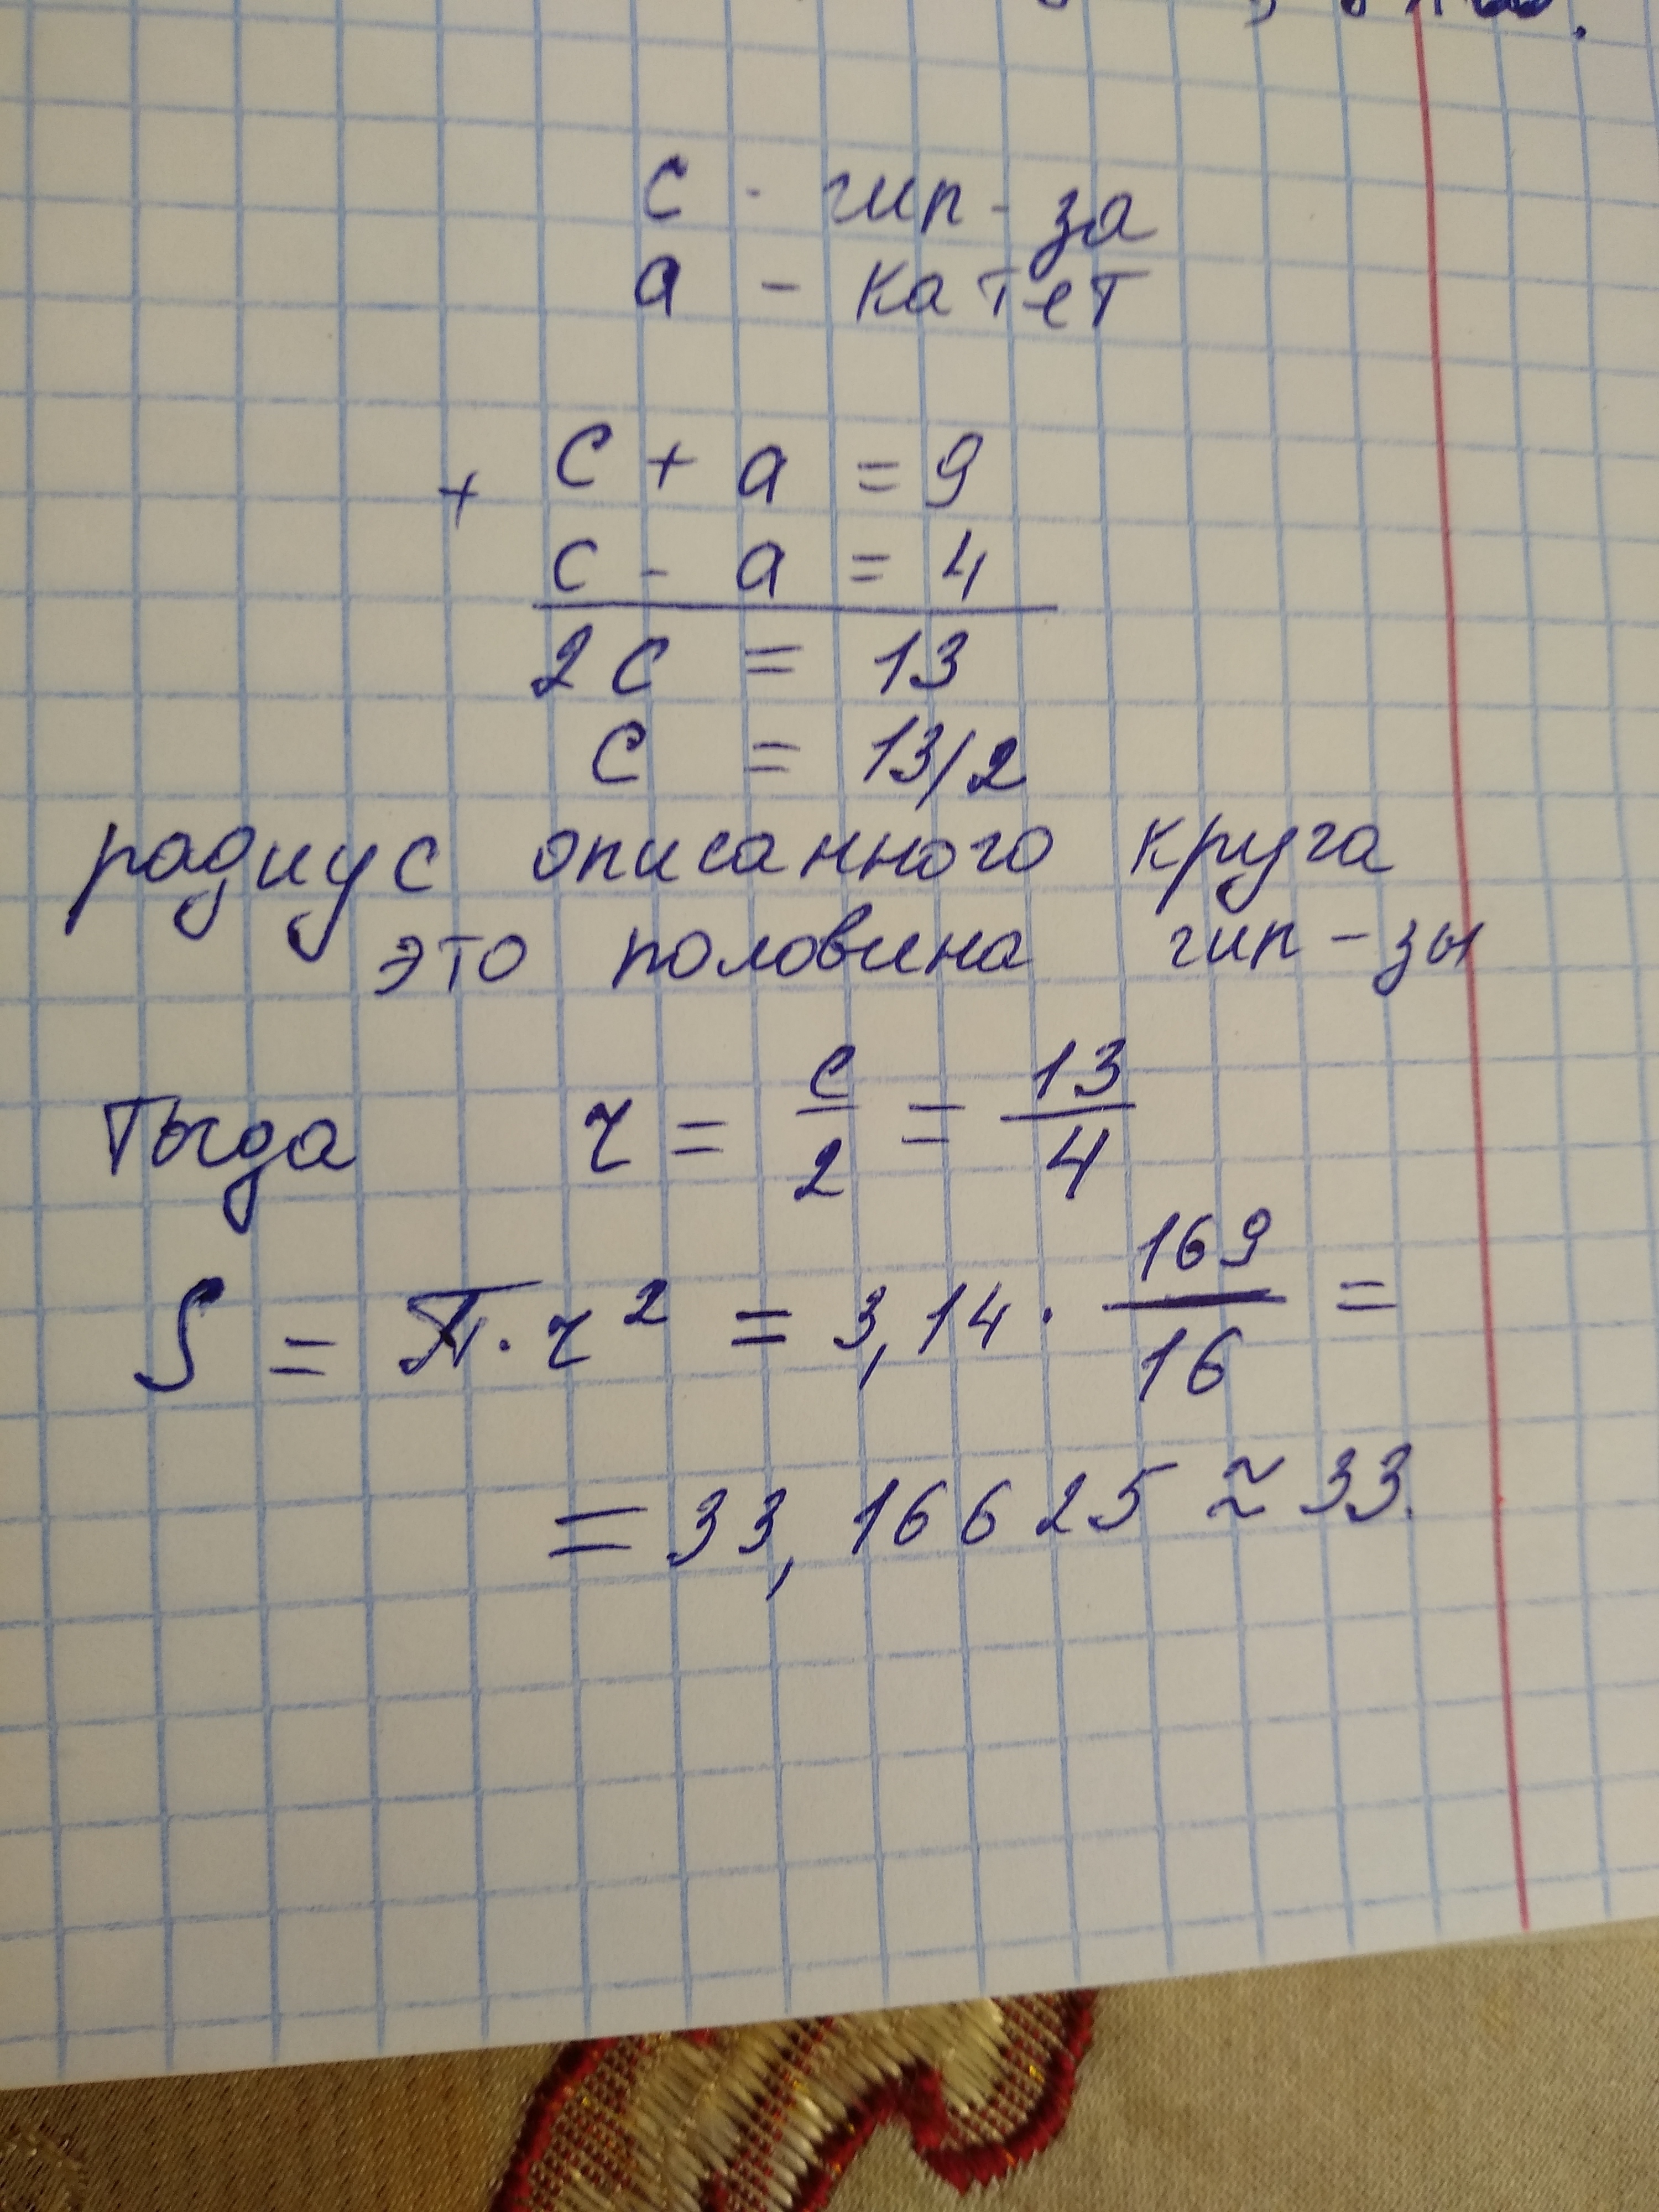 c - гип-за
a - катет
+ c + a = 9
c - a = 4
2c = 13
c = 13/2
радиус описанного круга
это половина гип-зы
Тогда r = c/2 = 13/4
S = π · r² = 3,14 · 169/16 =
= 33,16625 ≈ 33.